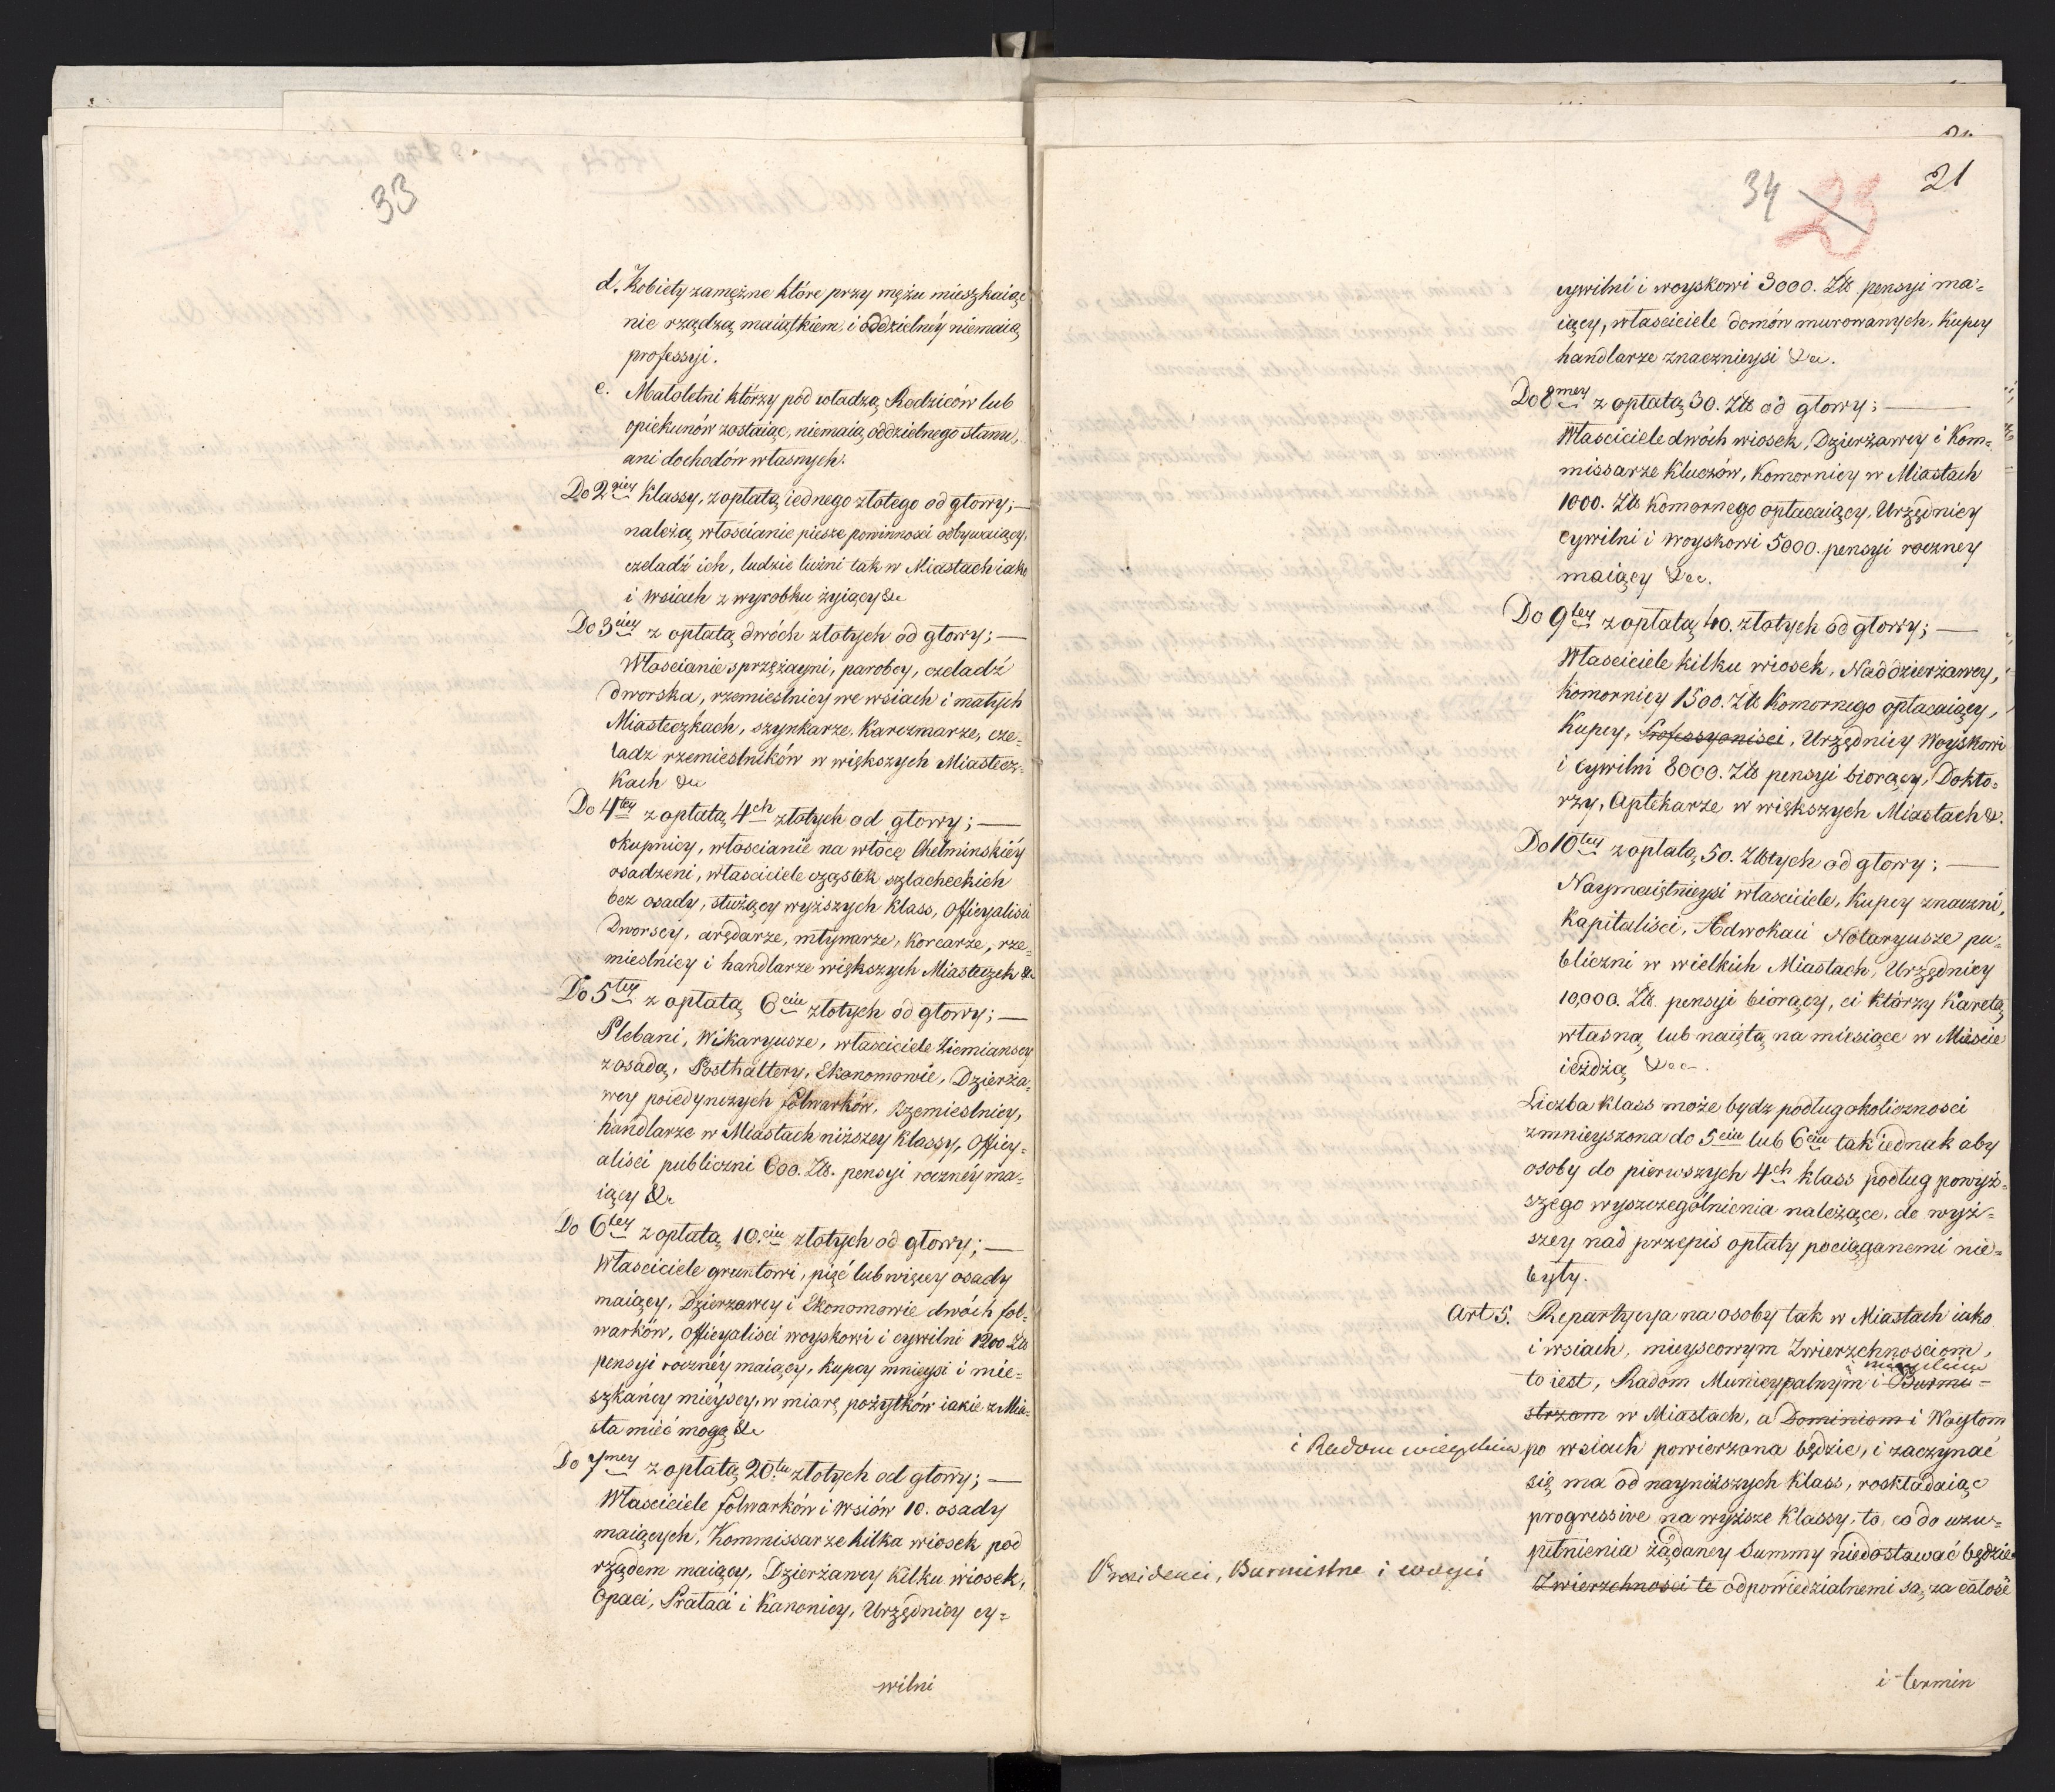 33
d. Kobiety zamężne które przy mężu mieszkaiąc
nie rządzą maiątkiem i oddzielnéy niemaią
professyi.
e. Małoletni którzy pod władzą Rodziców lub
opiekunów zostaiąc, niemaią oddzielnego stanu,
ani dochodów własnych.
Do 2giey Klassy, z opłatą iednego złotego od głowy; —
należą włościanie piesze powinności odbywaiący,
czeladź ich, ludzie luźni tak w Miastach iako
i wsiach z wyrobku żyiący &c
Do 3ciey z opłatą dwóch złotych od głowy; —
Włościanie sprzężayni, parobcy, czeladź
dworska, rzemieślnicy we wsiach i małych
Miasteczkach, szynkarze, Karczmarze, cze=
ladz rzemieślników w większych Miastecz=
kach &c
Do 4tey z opłatą 4ch złotych od głowy; —
okupnicy, włościanie na włócę Chełminskiéy
osadzeni, właściciele cząstek szlacheckich
bez osady, służący wyższych Klass, Officyaliści
Dworscy, arędarze, młynarze, Korcarze, rze=
mieślnicy i handlarze większych Miasteczek &c
Do 5tey z opłatą 6ciu złotych od głowy; —
Plebani, Wikaryusze, właściciele Ziemianscy
z osadą, Posthaltery, Ekonomowie, Dzierża=
wcy poiedynczych folwarków, Rzemieślnicy,
handlarze w Miastach niższey Klassy, Officy=
aliści publiczni 600. Złt. pensyi rocznéy ma=
iący &c
Do 6tey z opłatą 10.ciu złotych od głowy; —
Właściciele gruntowi, pięć lub więcey osady
maiący, Dzierżawcy i Ekonomowie dwóch fol=
warków, Officyaliści woyskowi i cywilni 1200 Złt
pensyi rocznéy maiący, Kupcy mnieysi i mie=
szkańcy mieyscy, w miarę pożytków iakie z Mia=
sta mieć mogą &c
Do 7mey z opłatą 20tu złotych od głowy; —
Właściciele folwarków i wsiów 10. osady
maiących, Kommissarze kilka wiosek pod
rządem maiący, Dzierżawcy kilku wiosek,
Opaci, Prałaci i Kanonicy, Urzędnicy cy=
wilni
34 23 21
cywilni i woyskowi 3000. Złt pensyi ma=
iący, właściciele domów murowanych, Kupcy
handlarze znacznieysi &c.
Do 8mey z opłatą 30. Złt od głowy; —
Właściciele dwóch wiosek, Dzierżawcy i Kom=
missarze Kluczów, Komornicy w Miastach
1000. Złt Komornego opłacaiący, Urzędnicy
cywilni i woyskowi 5000. pensyi roczney
maiący &cc.
Do 9tey z opłatą 40. złotych od głowy; —
Właściciele kilku wiosek, Naddzierżawcy,
Komornicy 1500. Złt Komornego opłacaiący,
Kupcy, Professyoniści, Urzędnicy Woyskowi
i cywilni 8000. Złt pensyi biorący, Dokto=
rzy, Aptekarze w większych Miastach &c.
Do 10tey z opłatą 50. Złotych od głowy; —
Naymaiętnieysi właściciele, Kupcy znaczni,
Kapitaliści, Adwokaci Notaryusze pu=
bliczni w wielkich Miastach, Urzędnicy
10,000. Złt. pensyi biorący, ci którzy Karetą
własną lub naiętą na miesiące w Mieście
ieżdżą &cc.
Liczba Klass może bydz podług okoliczności
zmnieyszona do 5ciu lub 6ciu tak iednak aby
osoby do pierwszych 4ch klass podług powyż=
szego wyszczególnienia należące, do wyż=
szey nad przepis opłaty pociąganemi nie=
były.
Art 5. Repartycya na osoby tak w Miastach iako
i wsiach, mieyscowym Zwierzchnościom,
to iest, Radom Municypalnym i Burmi=
strzom w Miastach, a Dominiom i Woytom
i Radom wieyskim po wsiach powierzona będzie, i zaczynać
się ma od nayniższych Klass, roskładaiąc
progressive na wyższe Klassy, to, co do uzu=
pełnienia żądaney Summy niedostawać będzie
Prezidenci, Burmistrze i woyci Zwierzchności te odpowiedzialnemi są, za całość
i termin